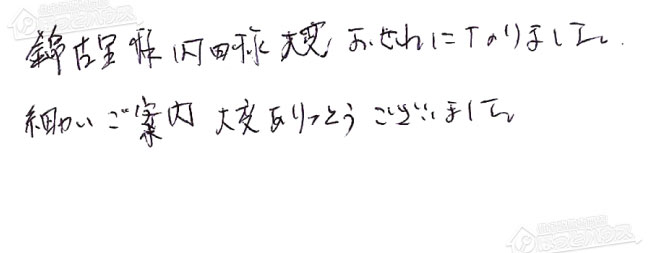 錦古里様 内田様 大変 おせわになりました。
細かいご案内 大変ありがとうございました